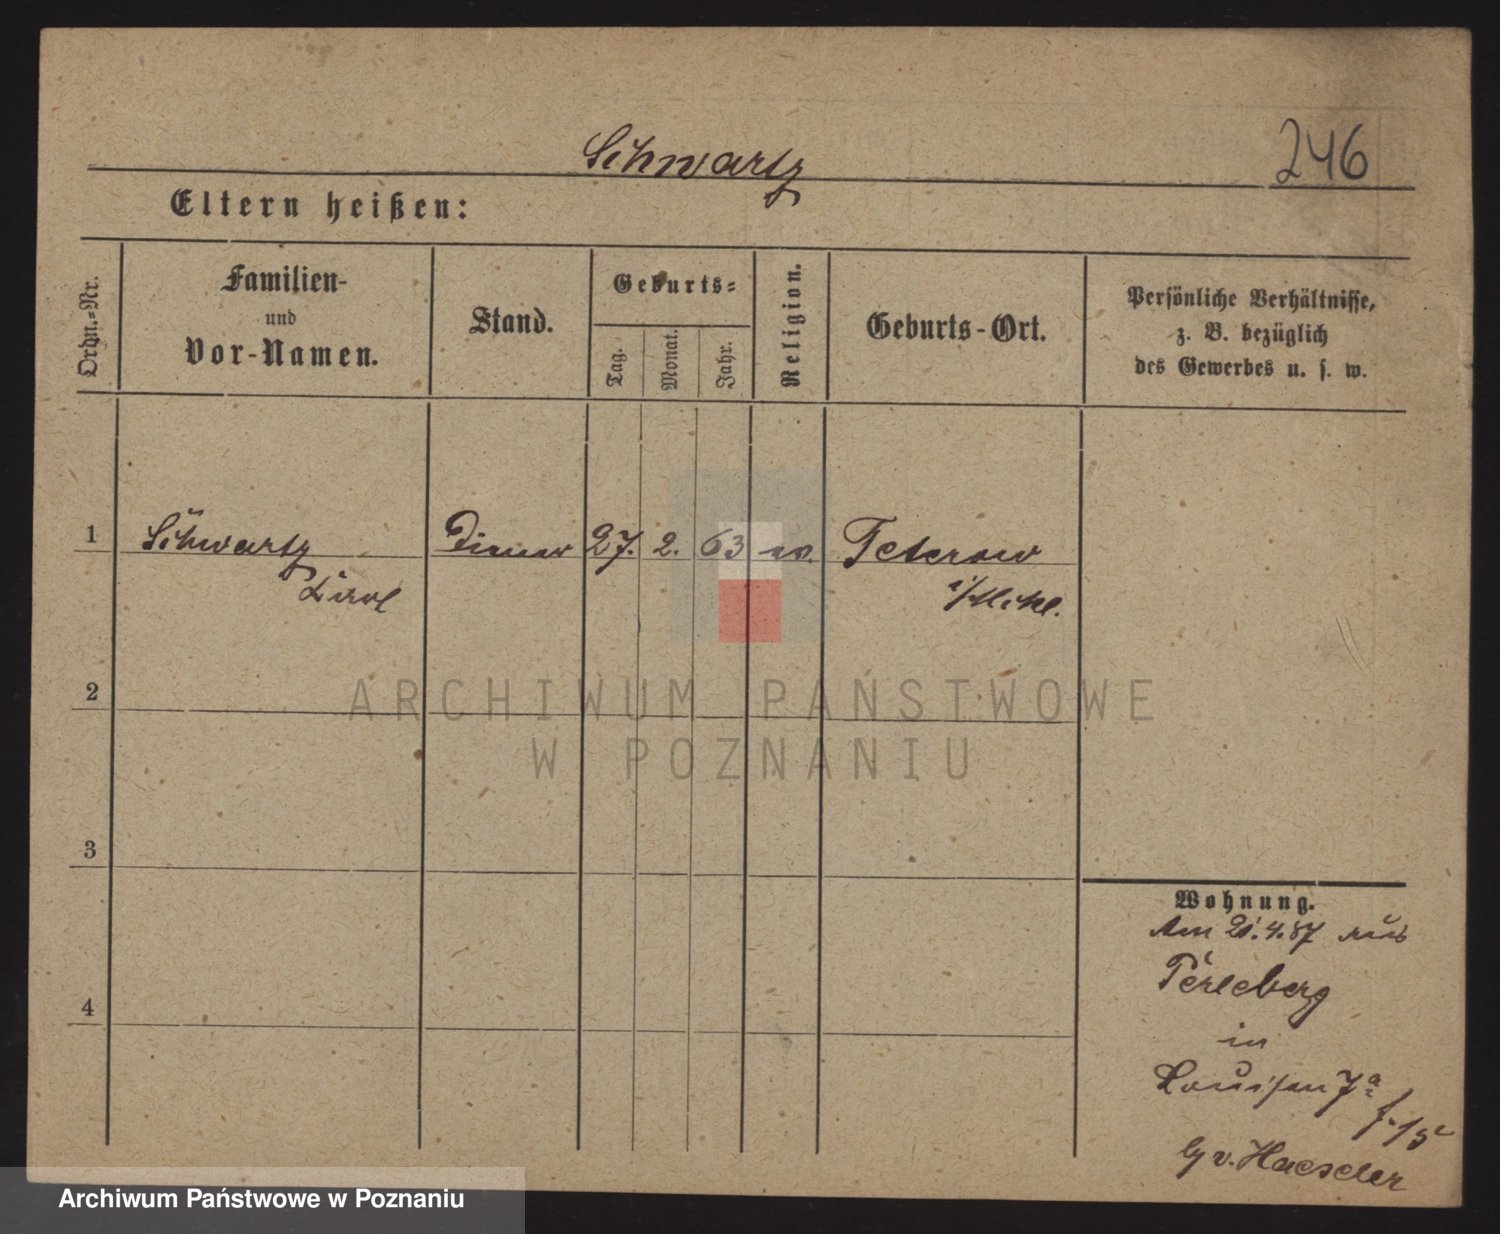 Schwartz
246
Eltern heißen:
Ordn.-Nr.
Familien-
und
Vor-Namen.
Stand.
Geburts-
Tag.
Monat.
Jahr.
Religion.
Geburts-Ort.
Persönliche Verhältnisse,
z. B. bezüglich
des Gewerbes u. s. w.
1
Schwartz
Diener
27.
2.
63
ev.
Teterow
Carl
i/Meckl.
2
ARCHIWUM PAŃSTWOWE
W POZNANIU
3
Wohnung.
Am 21.4.87 aus
Perleberg
4
in
Louisen 7a
b/ v. Haeseler
Archiwum Państwowe w Poznaniu